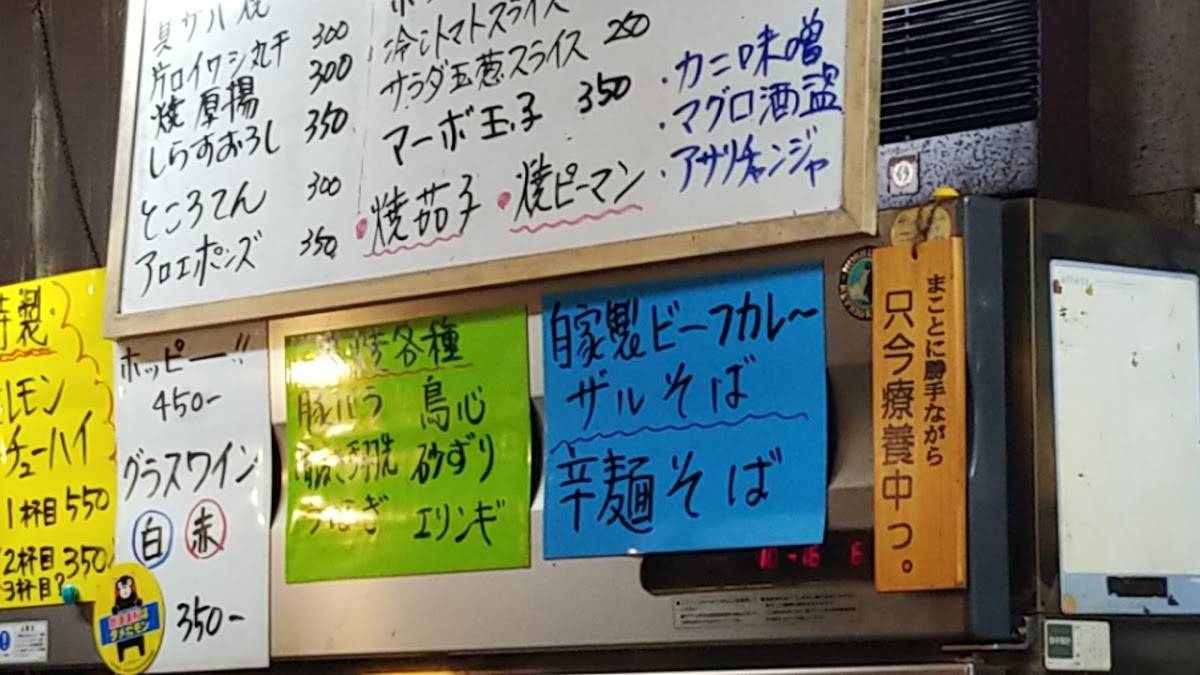 片口イワシ丸干 300
焼厚揚 300
しらすおろし 350
ところてん 300
アロエポンズ 350
冷しトマトスライス
サラダ玉葱スライス 250
マーボ玉子 350
・焼茄子 ・焼ピーマン
・カニ味噌
・マグロ酒盗
・アサリチャンジャ
特製
レモン
チューハイ
1杯目 550
2杯目 350
3杯目?
ホッピー!!
450-
グラスワイン
白 赤
350-
焼各種
豚バラ 鳥心
砂ずり
エリンギ
自家製ビーフカレ〜
ザルそば
辛麺そば
まことに勝手ながら
只今療養中っ。